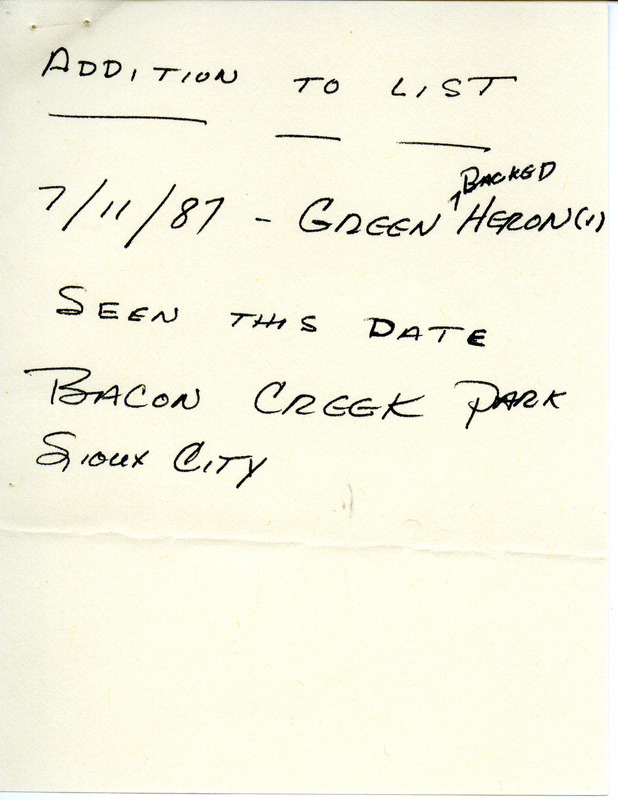 ADDITION TO LIST
7/11/87 - GREEN BACKED HERON (1)
SEEN THIS DATE
BACON CREEK PARK
SIOUX CITY